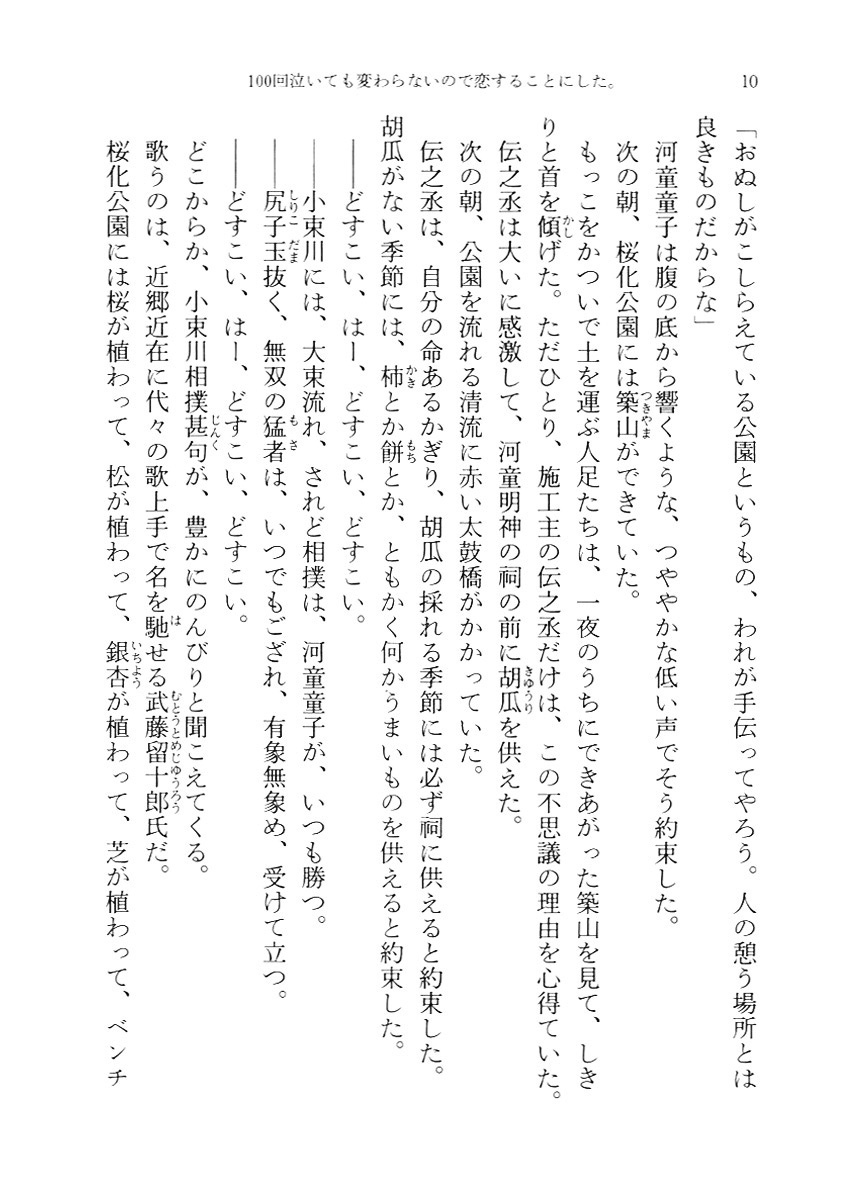 100回泣いても変わらないので恋することにした。
10
「おぬしがこしらえている公園というもの、われが手伝ってやろう。人の憩う場所とは
良きものだからな」
河童童子は腹の底から響くような、つややかな低い声でそう約束した。
次の朝、桜化公園には築山ができていた。
もっこをかついで土を運ぶ人足たちは、一夜のうちにできあがった築山を見て、しき
りと首を傾げた。ただひとり、施工主の伝之丞だけは、この不思議の理由を心得ていた。
伝之丞は大いに感激して、河童明神の祠の前に胡瓜を供えた。
次の朝、公園を流れる清流に赤い太鼓橋がかかっていた。
伝之丞は、自分の命あるかぎり、胡瓜の採れる季節には必ず祠に供えると約束した。
胡瓜がない季節には、柿とか餅とか、ともかく何かうまいものを供えると約束した。
――どすこい、はー、どすこい、どすこい。
――小束川には、大束流れ、されど相撲は、河童童子が、いつも勝つ。
――尻子玉抜く、無双の猛者は、いつでもござれ、有象無象め、受けて立つ。
――どすこい、はー、どすこい、どすこい。
どこからか、小束川相撲甚句が、豊かにのんびりと聞こえてくる。
歌うのは、近郷近在に代々の歌上手で名を馳せる武藤留十郎氏だ。
桜化公園には桜が植わって、松が植わって、銀杏が植わって、芝が植わって、ベンチ